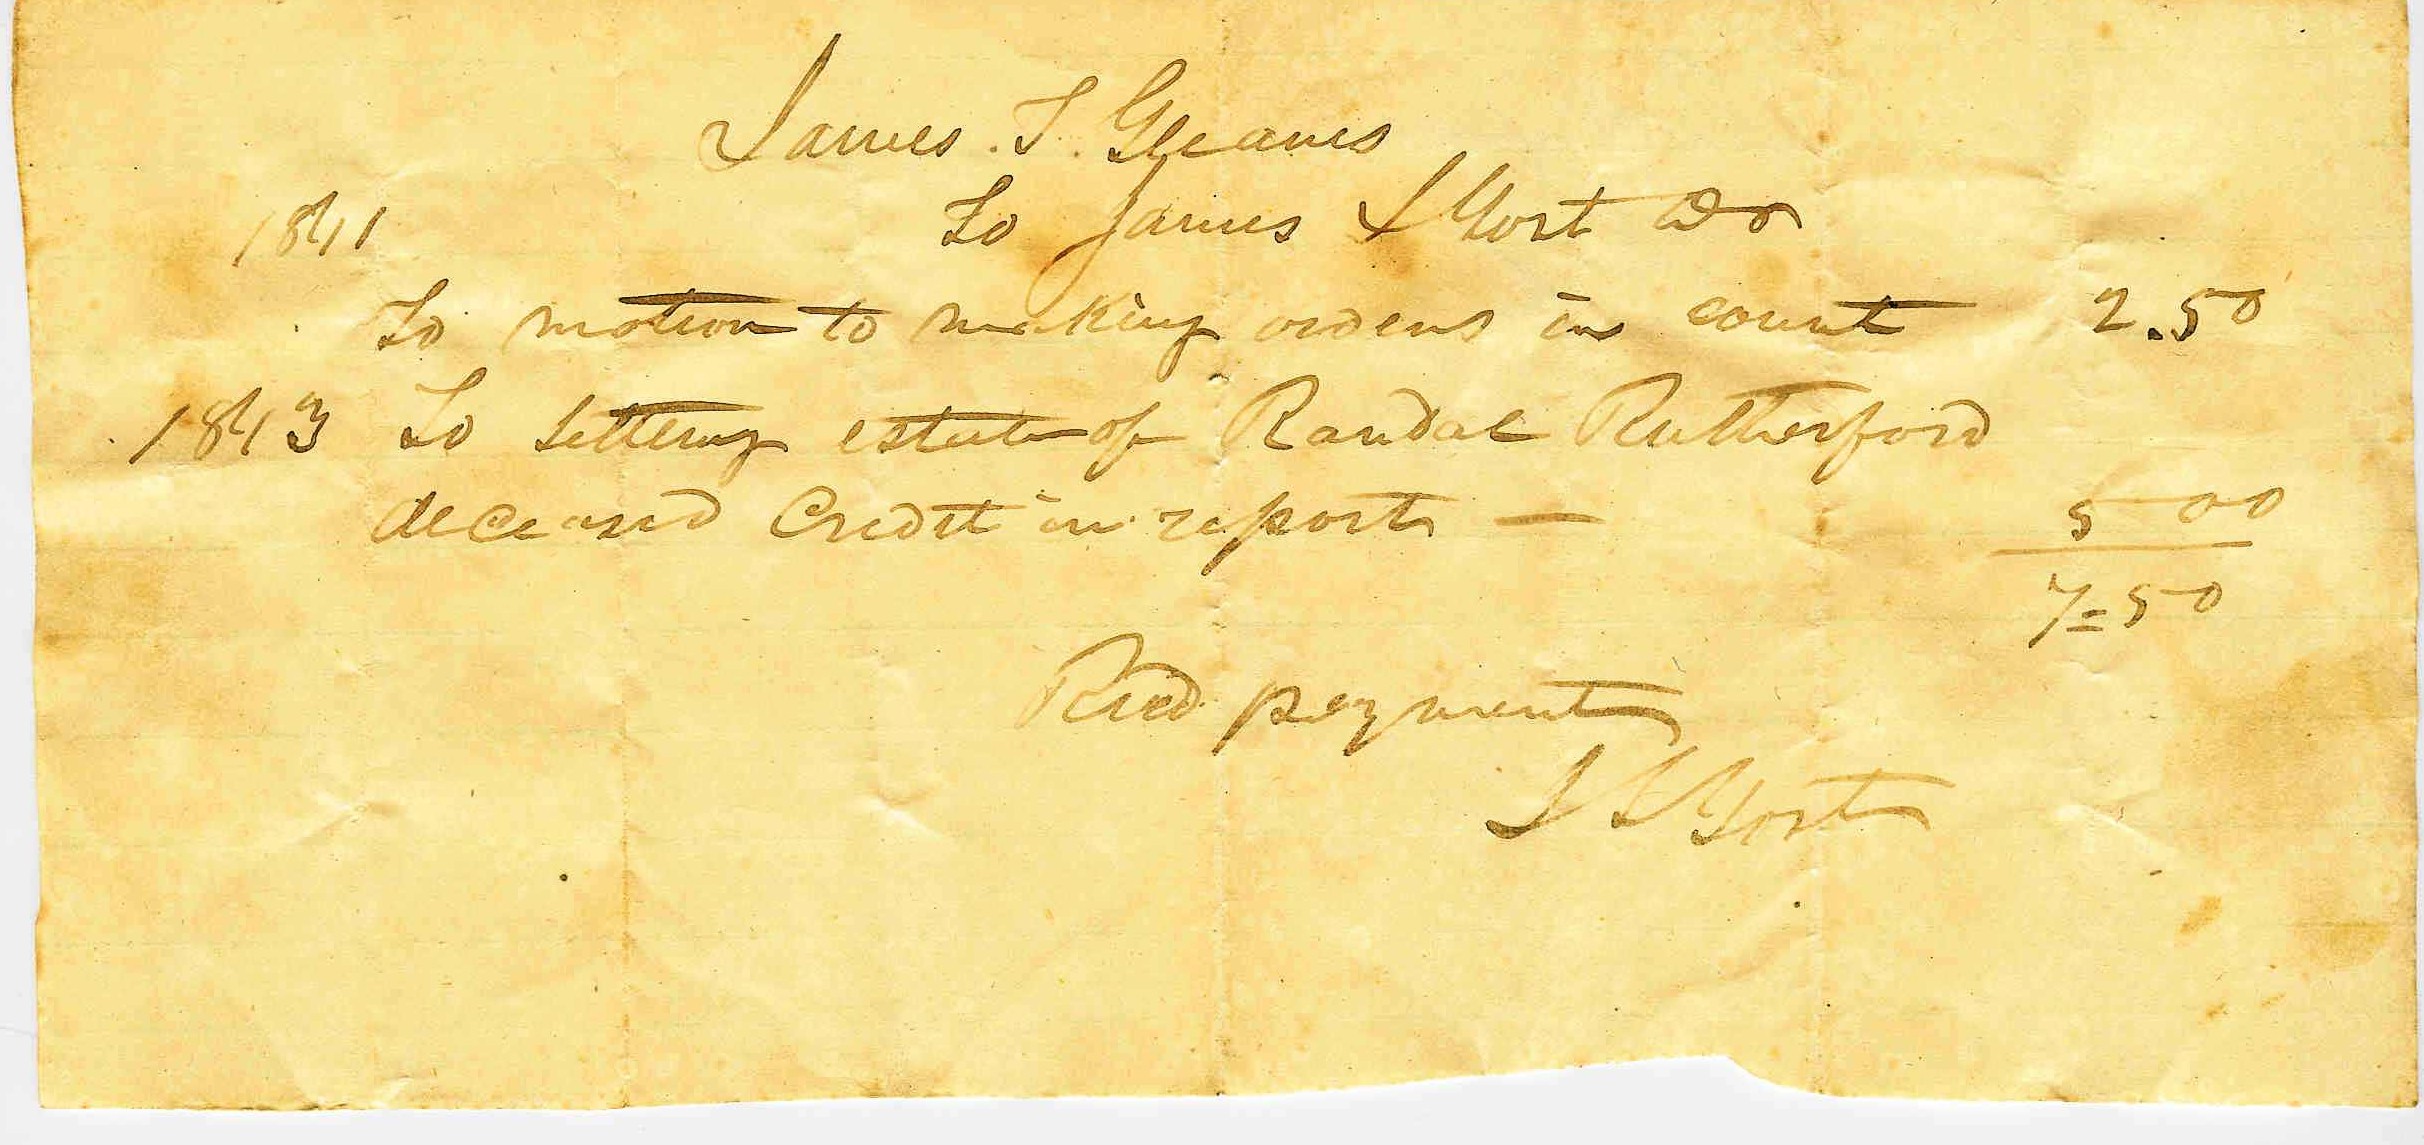 James . T . Gleaves
1841 To James S Yost Dr
To motion to making orders in court 2.50
1843 To setteing estate of Randal Rutherford
deceased Credit in report — 5 00
7=50
Recd payment
J S Yost